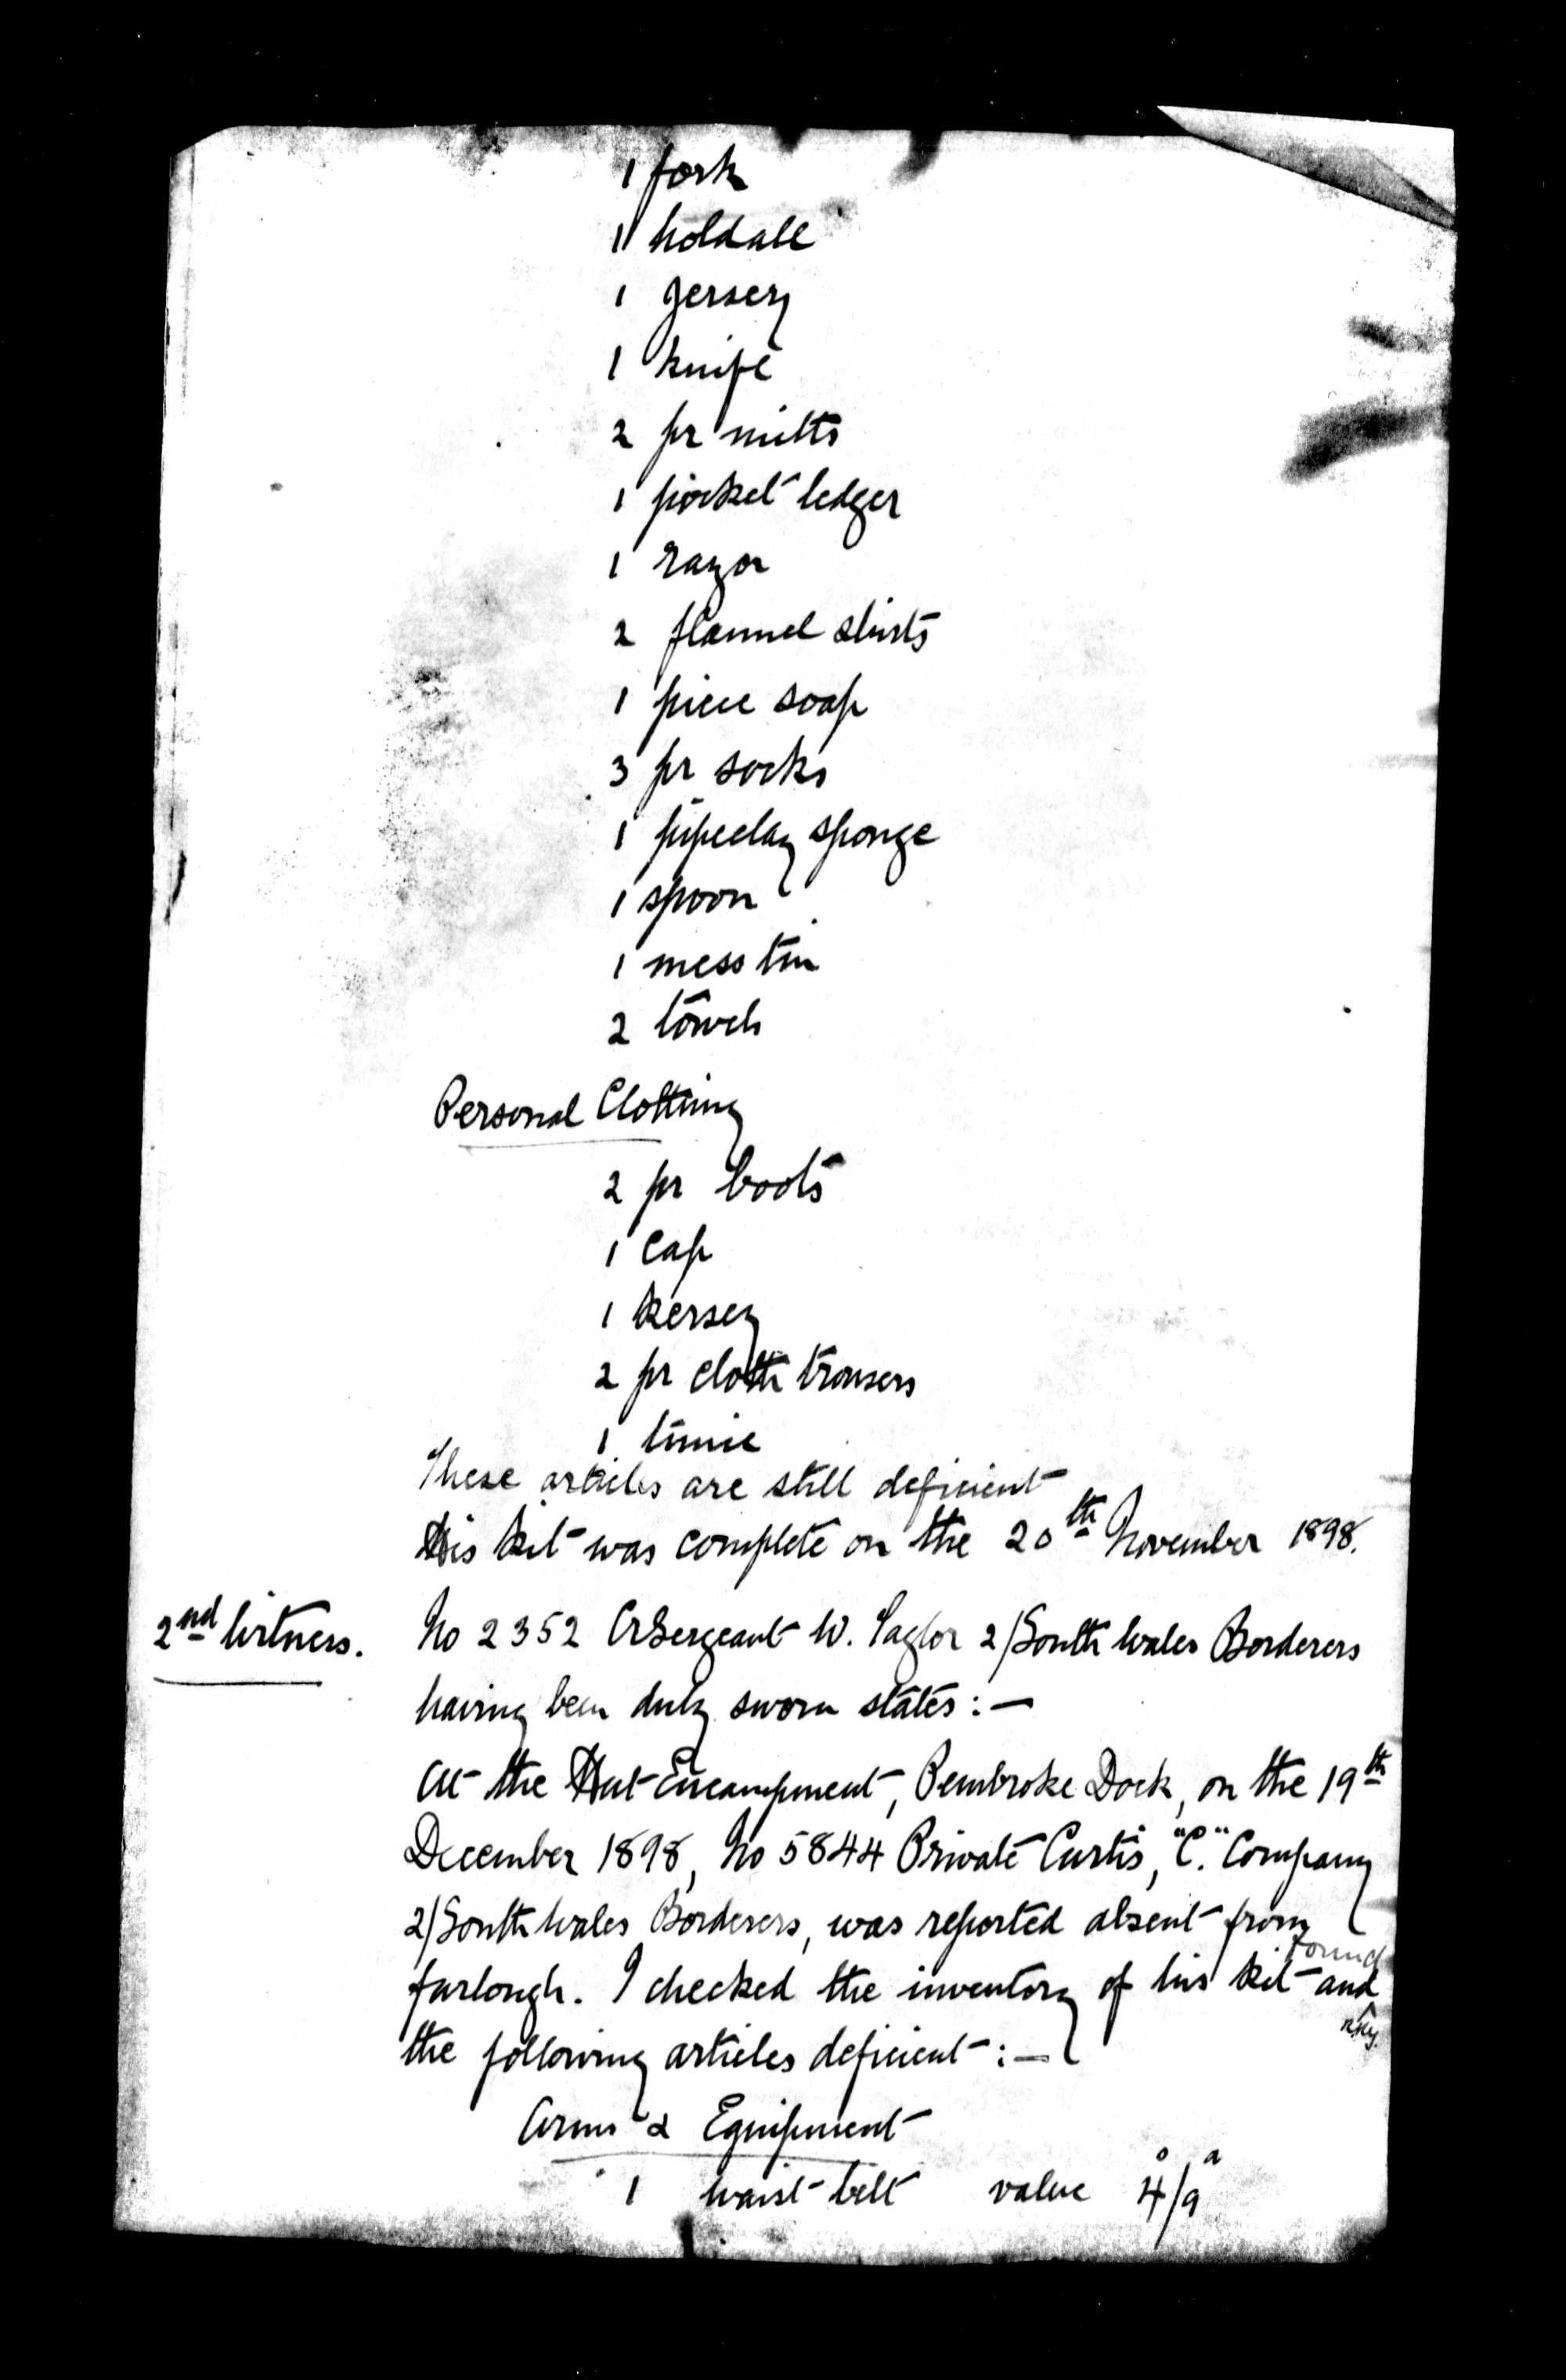 1 fork
1 holdall
1 jersey
1 knife
2 pr mitts
1 pocket ledger
1 razor
2 flannel shirts
1 piece soap
3 pr socks
1 pipeclay sponge
1 spoon
1 mess tin
2 towels
Personal Clothing
2 pr boots
1 cap
1 kersey
2 pr cloth trousers
1 tunic
These articles are still deficient
His kit was complete on the 20th November 1898.
2nd Witness. No 2352 Cr Sergeant W. Taylor 2/South Wales Borderers
having been duly sworn states:—
At the Hut Encampment, Pembroke Dock, on the 19th
December 1898, No 5844 Private Curtis, "C." Company
2/South Wales Borderers, was reported absent from
furlough. I checked the inventory of his kit and found
the following articles deficient:—
Arms & Equipment
1 waist belt value 4/9